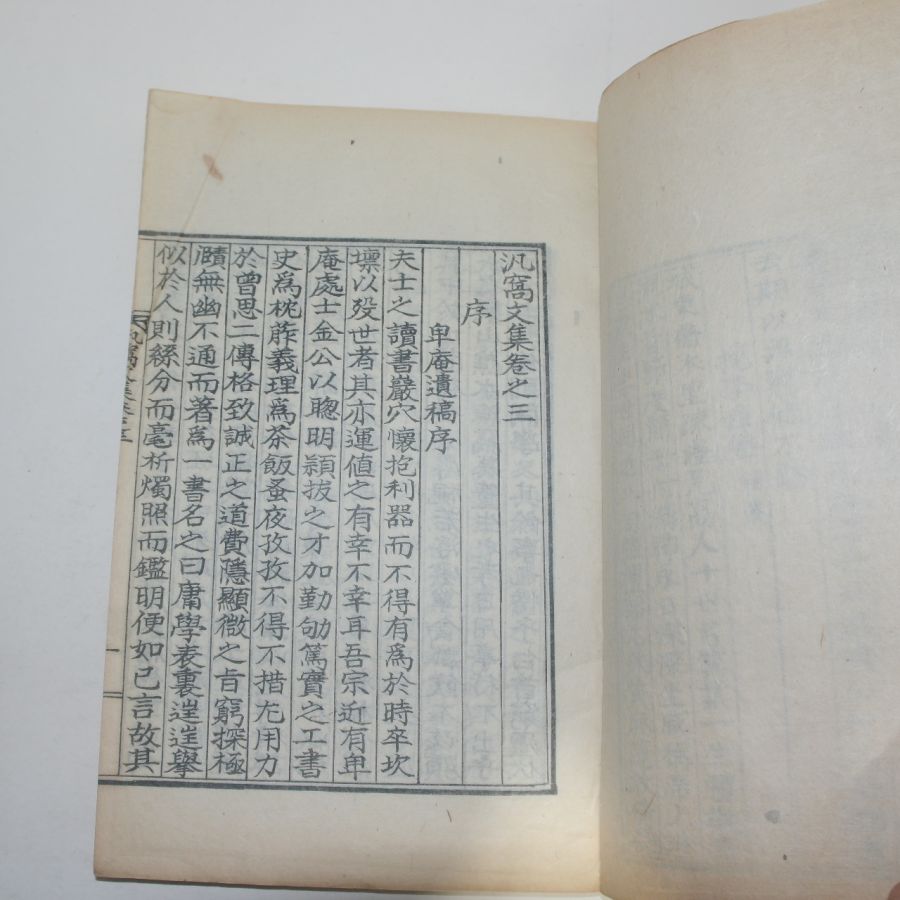 汎窩文集卷之三
序
卑庵遺稿序
夫士之讀書巖穴懷抱利器而不得有爲於時卒坎
壈以歿世者其亦運値之有幸不幸耳吾宗近有卑
庵處士金公以聰明穎拔之才加勤劬篤實之工書
史爲枕葄義理爲茶飯蚤夜孜孜不得不措尤用力
於曾思二傳格致誠正之道費隱顯微之旨窮探極
賾無幽不通而著爲一書名之曰庸學表裏逞逞擧
似於人則絲分而毫析燭照而鑑明便如已言故其